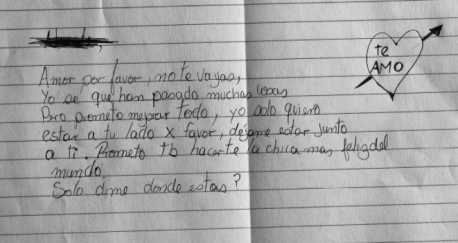 te
AMO
Amor por favor, no te vayas,
Yo se que han pasado muchas cosas
Pero prometo mejorar todo, yo solo quiero
estar a tu lado x favor, dejame estar junto
a ti. Prometo tb hacerte la chica mas feliz del
mundo.
Solo dime donde estas?